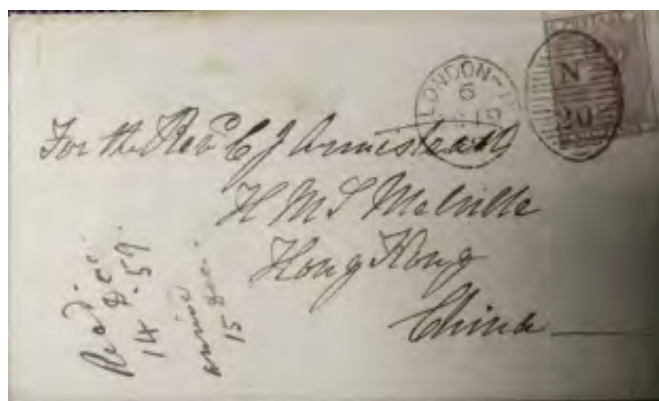 LONDON
6
N
20
For the Revd C J Armistead
H M S Melville
Hong Kong
China
Recd Dec.
14. 57.
15 Dec.